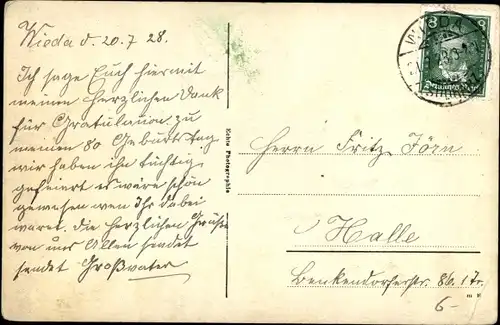 Wieda d. 20.7 28.
Ich sage Euch hiermit
meinen herzlichen Dank
für Gratulation zu
meinen 80 Geburtstag
wir haben ihn tüchtig
gefeiert es wäre schön
gewesen wen Ihr dabei
waret. Die herzlichen Grüße
von uns Allen sendet
sendet Großvater
Kahle Photographie
WIEDA
8
Herrn Fritz Jörn
Halle
Benkendorferstr. 86. I Tr.
6-